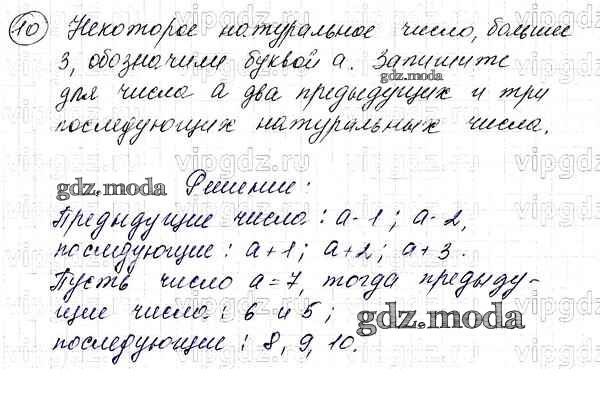 10 Некоторое натуральное число, большее
3, обозначили буквой а. Запишите
gdz.moda
для числа а два предыдущих и три
последующих натуральных числа.
gdz.moda Решение:
Предыдущие числа: а-1; а-2,
последующие: а+1; а+2; а+3.
Пусть число а=7, тогда предыду-
щие числа: 6 и 5;
gdz.moda
последующие: 8, 9, 10.